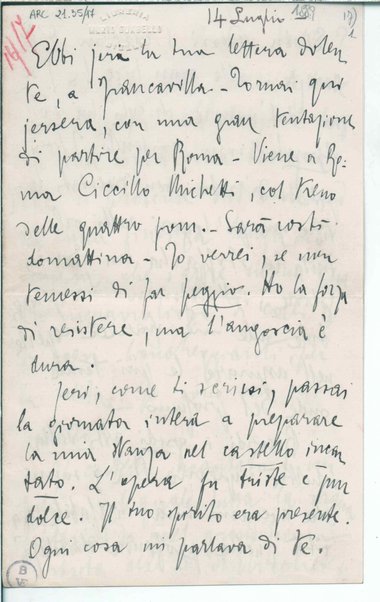 ARC 21.35/47
14 Luglio
14/7
1
Ebbi jeri la tua lettera dolen-
te, a Francavilla – Tornai qui
jersera, con una gran tentazione
di partire per Roma – Viene a Ro-
ma Ciccillo Michetti, col treno
delle quattro pom. – Sarà costì
domattina – Io verrei, se non
temessi di far peggio. Ho la forza
di resistere, ma l'angoscia è
dura.
Jeri, come ti scrissi, passai
la giornata intera a preparare
la mia stanza nel castello incan-
tato. L'opera fu triste e pur
dolce. Il tuo spirito era presente.
Ogni cosa mi parlava di te.
B